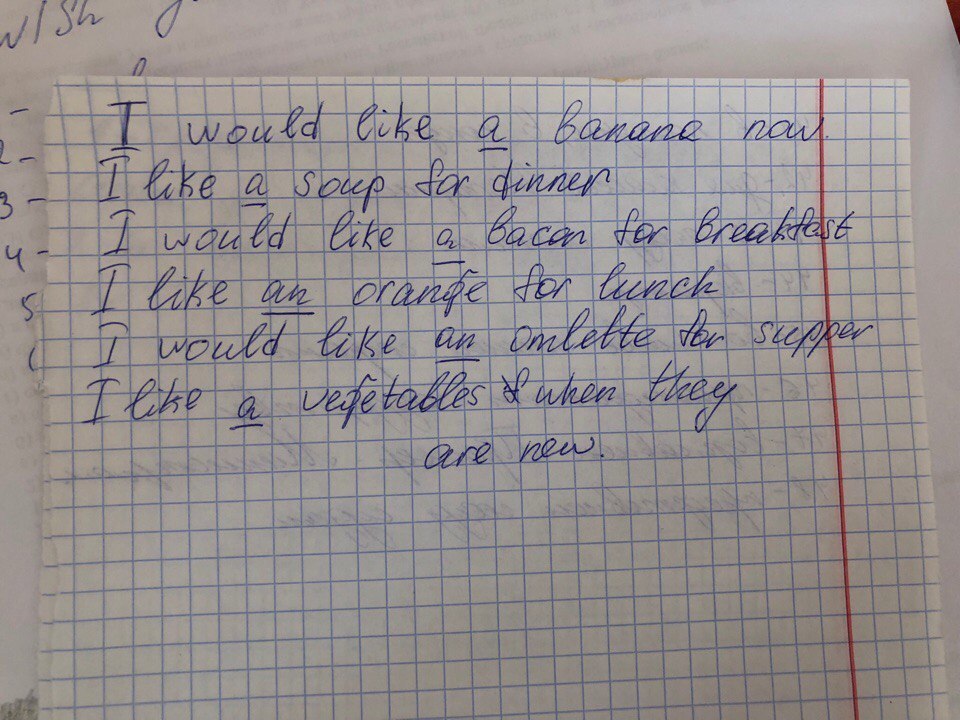 wish
I would like a banana now.
2- I like a soup for dinner
3- I would like a bacon for breakfast
4- I like an orange for lunch
5 I would like an omlette for supper
I like a vegetables & when they
are new.